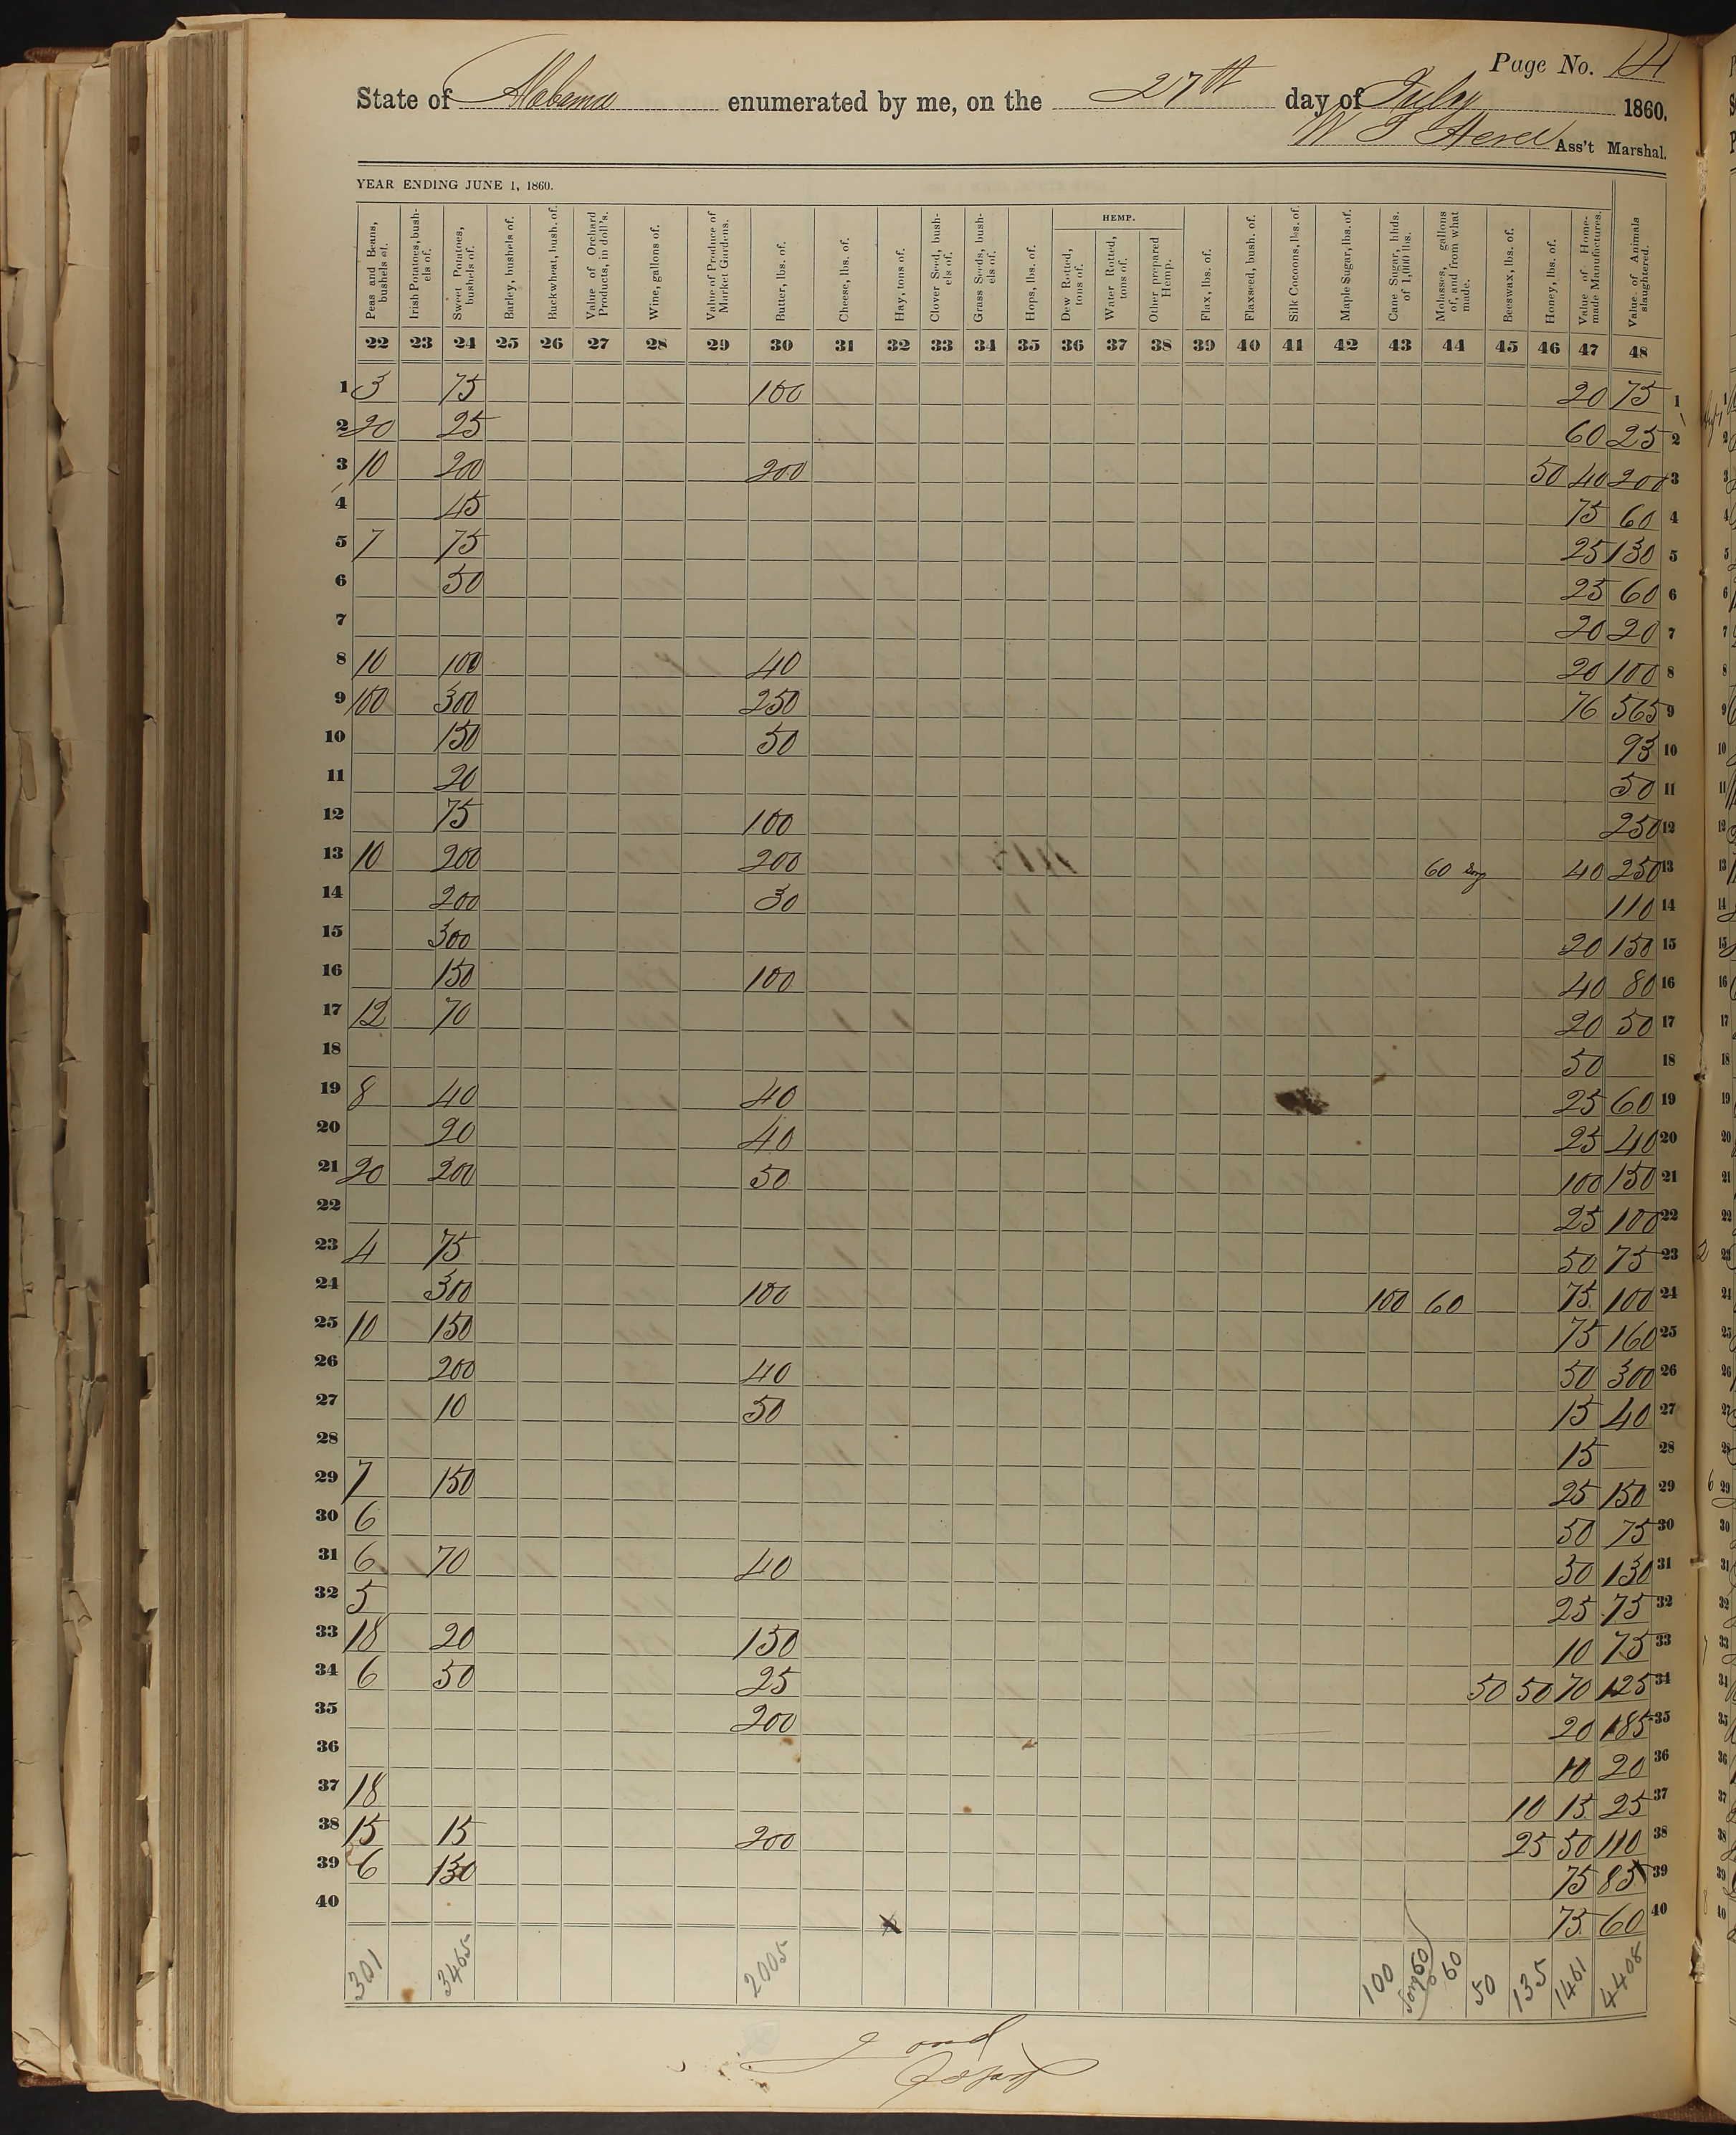 Page No. 14
State of Alabama enumerated by me, on the 27th day of July 1860.
W F Ass't Marshal.
YEAR ENDING JUNE 1, 1860.
HEMP.
Peas and Beans, bushels of. Irish Potatoes, bushels of. Sweet Potatoes, bushels of. Barley, bushels of. Buckwheat, bush. of. Value of Orchard Products, in doll's. Wine, gallons of. Value of Produce of Market Gardens. Butter, lbs. of. Cheese, lbs. of. Hay, tons of. Clover Seed, bushels of. Grass Seeds, bushels of. Hops, lbs. of. Dew Rotted, tons of. Water Rotted, tons of. Other prepared Hemp. Flax, lbs. of. Flaxseed, bush. of. Silk Cocoons, lbs. of. Maple Sugar, lbs. of. Cane Sugar, hhds. of 1,000 lbs. Molasses, gallons of, and from what made. Beeswax, lbs. of. Honey, lbs. of. Value of Home-made Manufactures. Value of Animals slaughtered.
22 23 24 25 26 27 28 29 30 31 32 33 34 35 36 37 38 39 40 41 42 43 44 45 46 47 48
1 3 75 100 20 75 1
2 20 25 60 25 2
3 10 200 200 50 40 200 3
4 45 75 60 4
5 7 75 25 130 5
6 50 25 60 6
7 20 20 7
8 10 100 40 20 100 8
9 100 300 250 76 565 9
10 150 50 93 10
11 20 50 11
12 75 100 250 12
13 10 200 200 60 Sorg 40 250 13
14 200 30 110 14
15 300 20 150 15
16 150 100 40 80 16
17 12 70 20 50 17
18 50 18
19 8 40 40 25 60 19
20 20 40 25 40 20
21 20 200 50 100 150 21
22 25 100 22
23 4 75 50 75 23
24 300 100 100 60 75 100 24
25 10 150 75 160 25
26 200 40 50 300 26
27 10 50 15 40 27
28 15 28
29 7 150 25 150 29
30 6 50 75 30
31 6 70 40 30 130 31
32 5 25 75 32
33 18 20 150 10 75 33
34 6 50 25 50 50 70 125 34
35 200 20 185 35
36 10 20 36
37 18 10 15 25 37
38 15 15 200 25 50 110 38
39 6 130 75 85 39
40 75 60 40
301 3465 2005 100 60 50 135 1461 4408